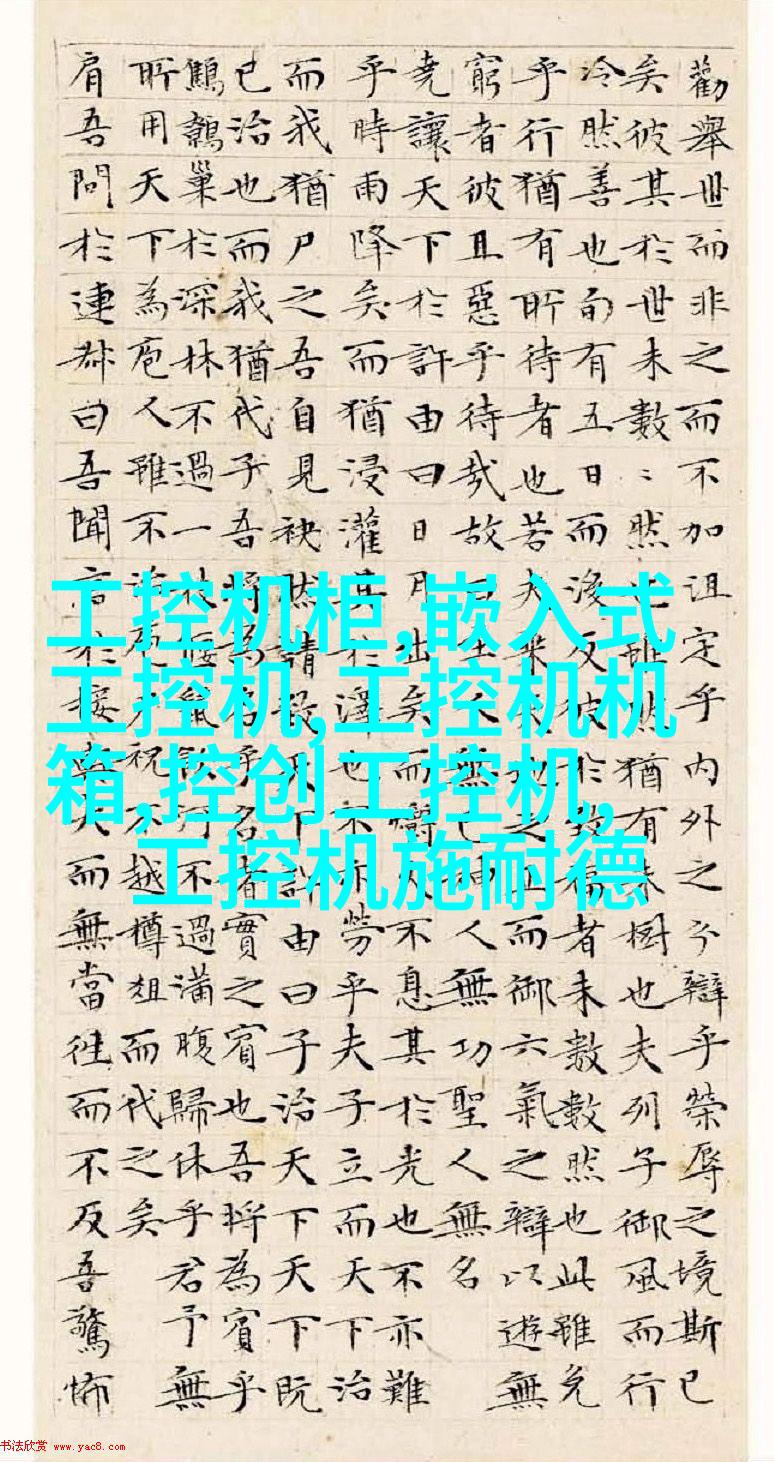 勸舉世而非之而不加沮定乎內外之分辯乎榮辱之境斯已
矣彼其於世未數〻然也雖然猶有未樹也夫列子御風而行
冷然善也旬有五日〻而後反彼於致福者未數數然也此雖免
乎行猶有所待者也若夫乘天地之正而御六氣之辯以遊無
窮者彼且惡乎待哉故曰至人無己神人無功聖人無名
堯讓天下於許由曰日月出矣而爝火不息其於光也不亦難
乎時雨降矣而猶浸灌其於澤也不亦勞乎夫子立而天下治
而我猶尸之吾自見缺然請致天下許由曰子治天下天下既
已治也而我猶代子吾將為名乎名者實之賓也吾將為賓乎
鷦鷯巢於深林不過一枝偃鼠飲河不過滿腹歸休乎君予無
所用天下為庖人雖不治庖尸祝不越樽俎而代之矣
肩吾問於連叔曰吾聞言於接輿大而無當往而不反吾驚怖
工控机柜,嵌入式
工控机,工控机机
箱,控创工控机,
工控机施耐德
书法欣赏 www.yac8.com